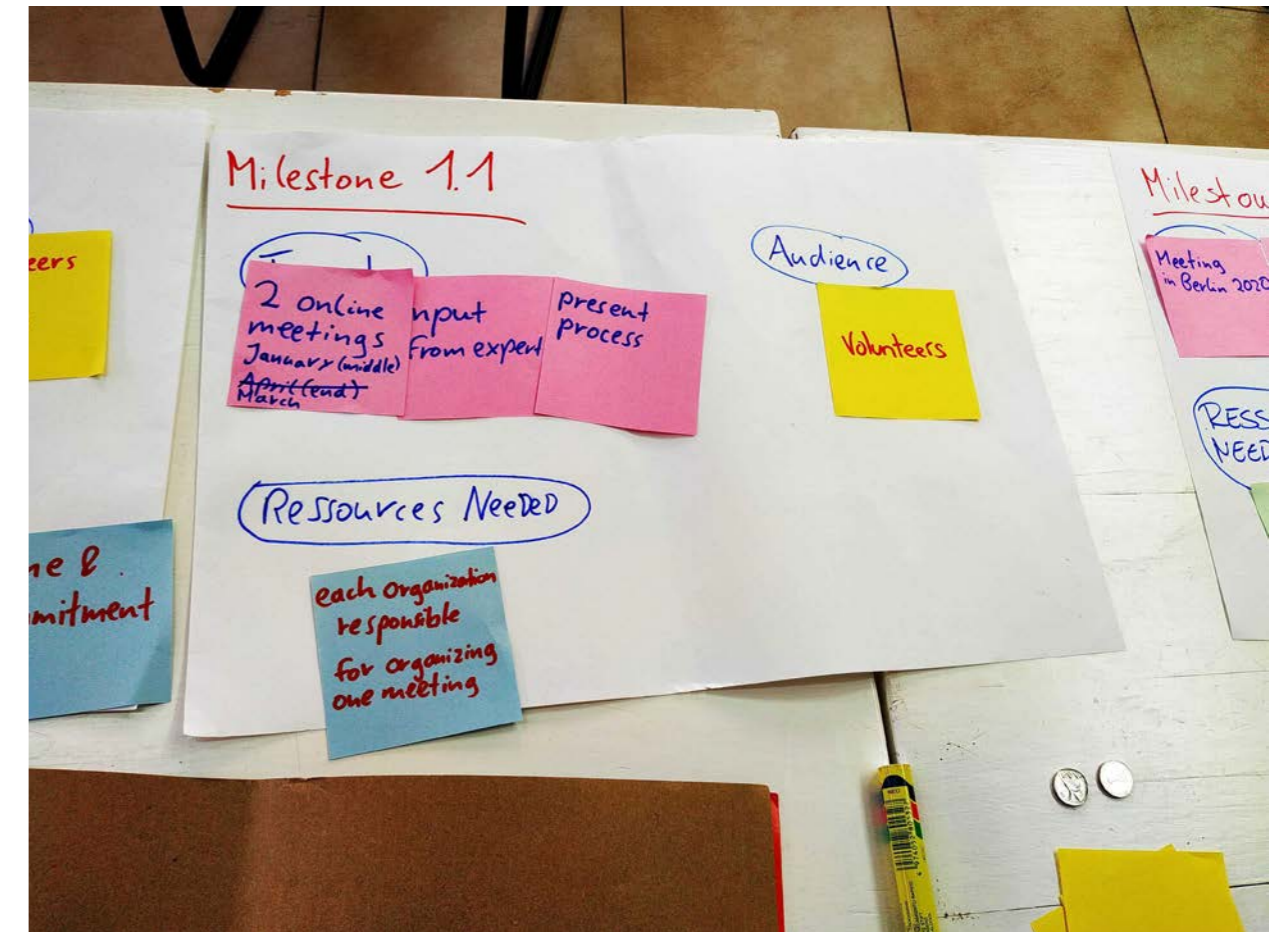 Milestone 1.1
2 online
meetings
January (middle)
April (end)
March
from expert
present
process
Audience
Volunteers
Ressources NeeDeD
each organization
responsible
for organizing
one meeting
Meeting
in Berlin 2020
NEO